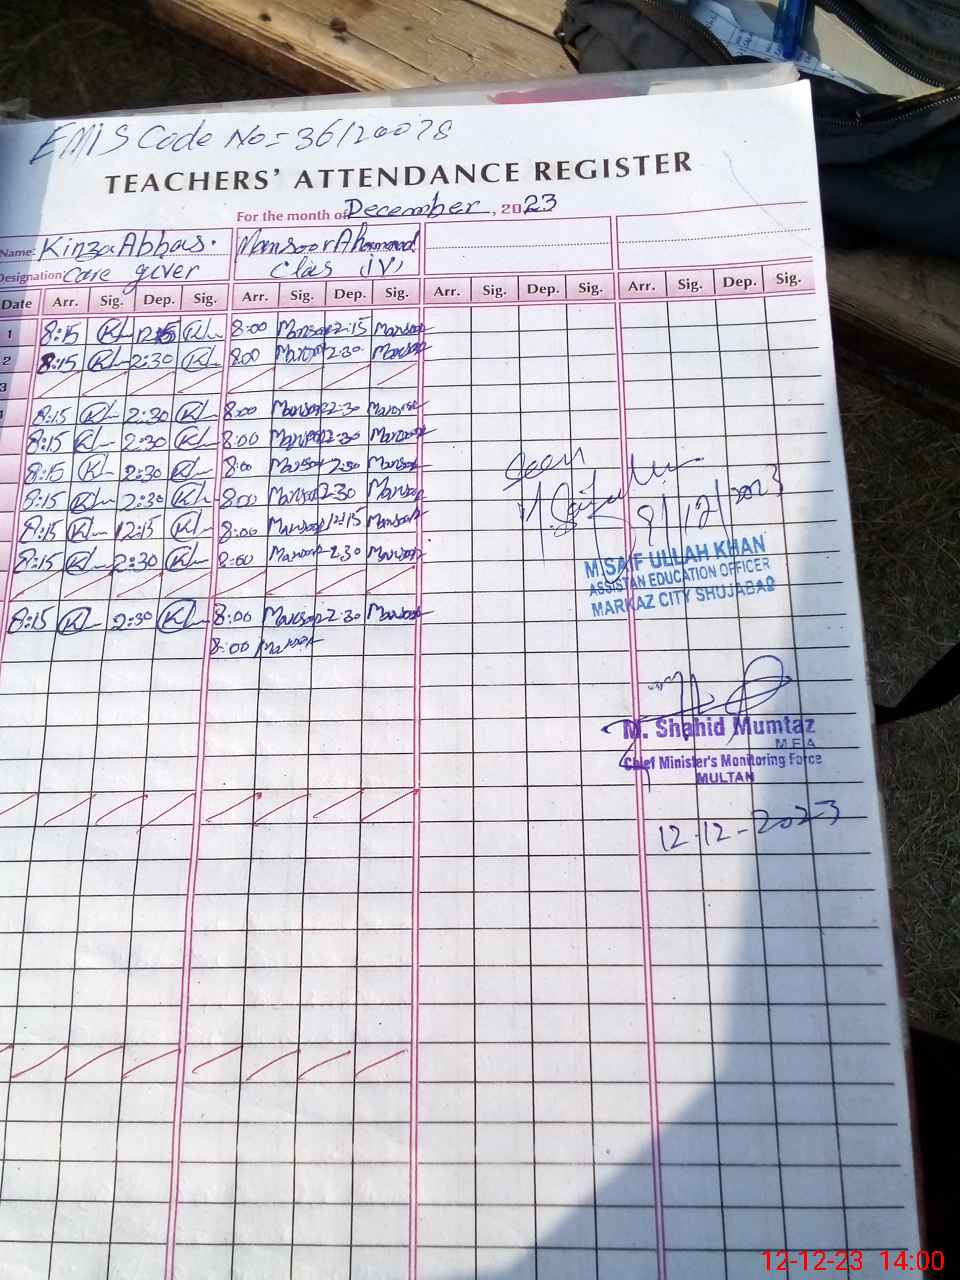 EMIS Code No = 36120078
TEACHERS' ATTENDANCE REGISTER
For the month of December, 2023
Name: Kinza Abbas. Mansoor Ahmmad
Designation Care giver Class (iv)
Date Arr. Sig. Dep. Sig. Arr. Sig. Dep. Sig. Arr. Sig. Dep. Sig. Arr. Sig. Dep. Sig.
1 8:15 12:15 8:00 Mansoor 12:15 Mansoor
2 8:15 2:30 8:00 Mansoor 2:30 Mansoor
3
8:15 2:30 8:00 Mansoor 2:30 Mansoor
8:15 2:30 8:00 Mansoor 2:30 Mansoor
8:15 2:30 8:00 Mansoor 2:30 Mansoor
8:15 2:30 8:00 Mansoor 2:30 Mansoor
8:15 12:15 8:00 Mansoor 12:15 Mansoor
8:15 2:30 8:00 Mansoor 2:30 Mansoor
8:15 2:30 8:00 Mansoor 2:30 Mansoor
8:00 Mansoor
Seen
8/12/2023
M SAIF ULLAH KHAN
ASSISTAN EDUCATION OFFICER
MARKAZ CITY SHUJABAD
M. Shahid Mumtaz
M E A
Chief Minister's Monitoring Force
MULTAN
12-12-2023
12-12-23 14:00